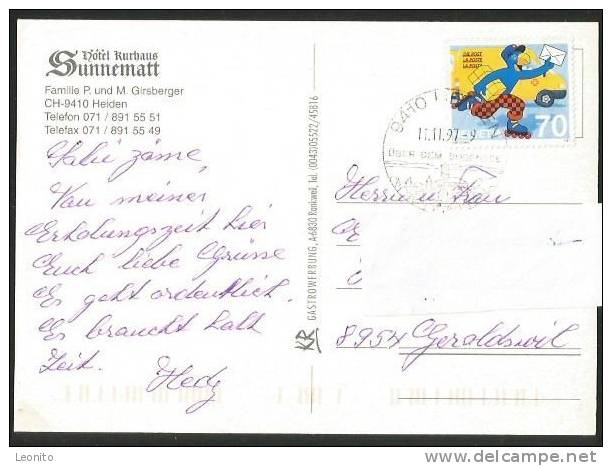 Hôtel Kurhaus
Sunnematt
Familie P. und M. Girsberger
CH-9410 Heiden
Telefon 071 / 891 55 51
Telefax 071 / 891 55 49
Salü zäme,
Von meiner
Erholungszeit hier
Euch liebe Grüsse
Es geht ordentlich.
Es braucht halt
Zeit. Hedy
GASTROWERBUNG, A-6830 Rankweil, Tel. (0043)05522/45816
KR
DIE POST
LA POSTE
LA POSTA
70
9410
11.11.97-9
ÜBER DEM BODENSEE
Herrn u. Frau
8954 Geroldswil
Leonito
www.delcampe.net